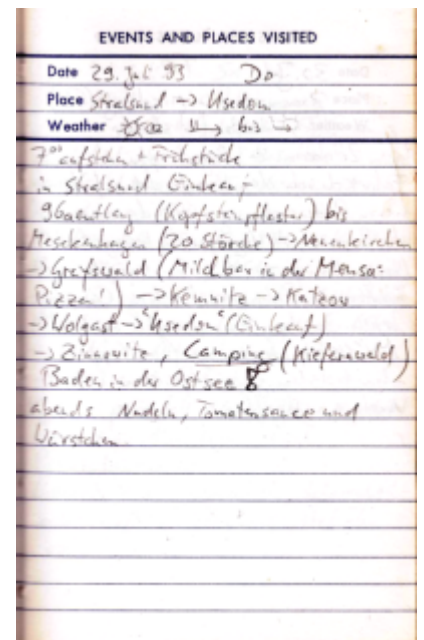 EVENTS AND PLACES VISITED
Date 29. Juli 93 Do
Place Stralsund -> Usedom
Weather
7°° aufstehen + Frühstück
in Stralsund Einkauf
96 entlang (Kopfsteinpflaster) bis
Mesekenhagen (20 Störche) -> Neuenkirchen
-> Greifswald (Milchbar in der Mensa:
Pizza!) -> Kemnitz -> Katzow
-> Wolgast -> "Usedom" (Einkauf)
-> Zinnowitz, Camping (Kiefernwald)
Baden in der Ostsee
abends Nudeln, Tomatensauce und
Würstchen